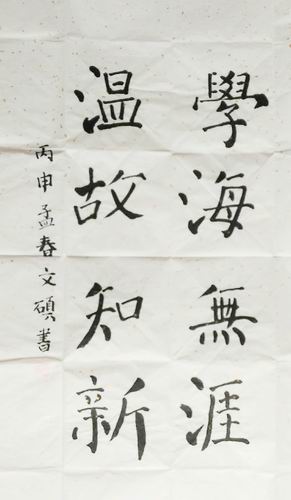 學海無涯
溫故知新
丙申孟春文碩書